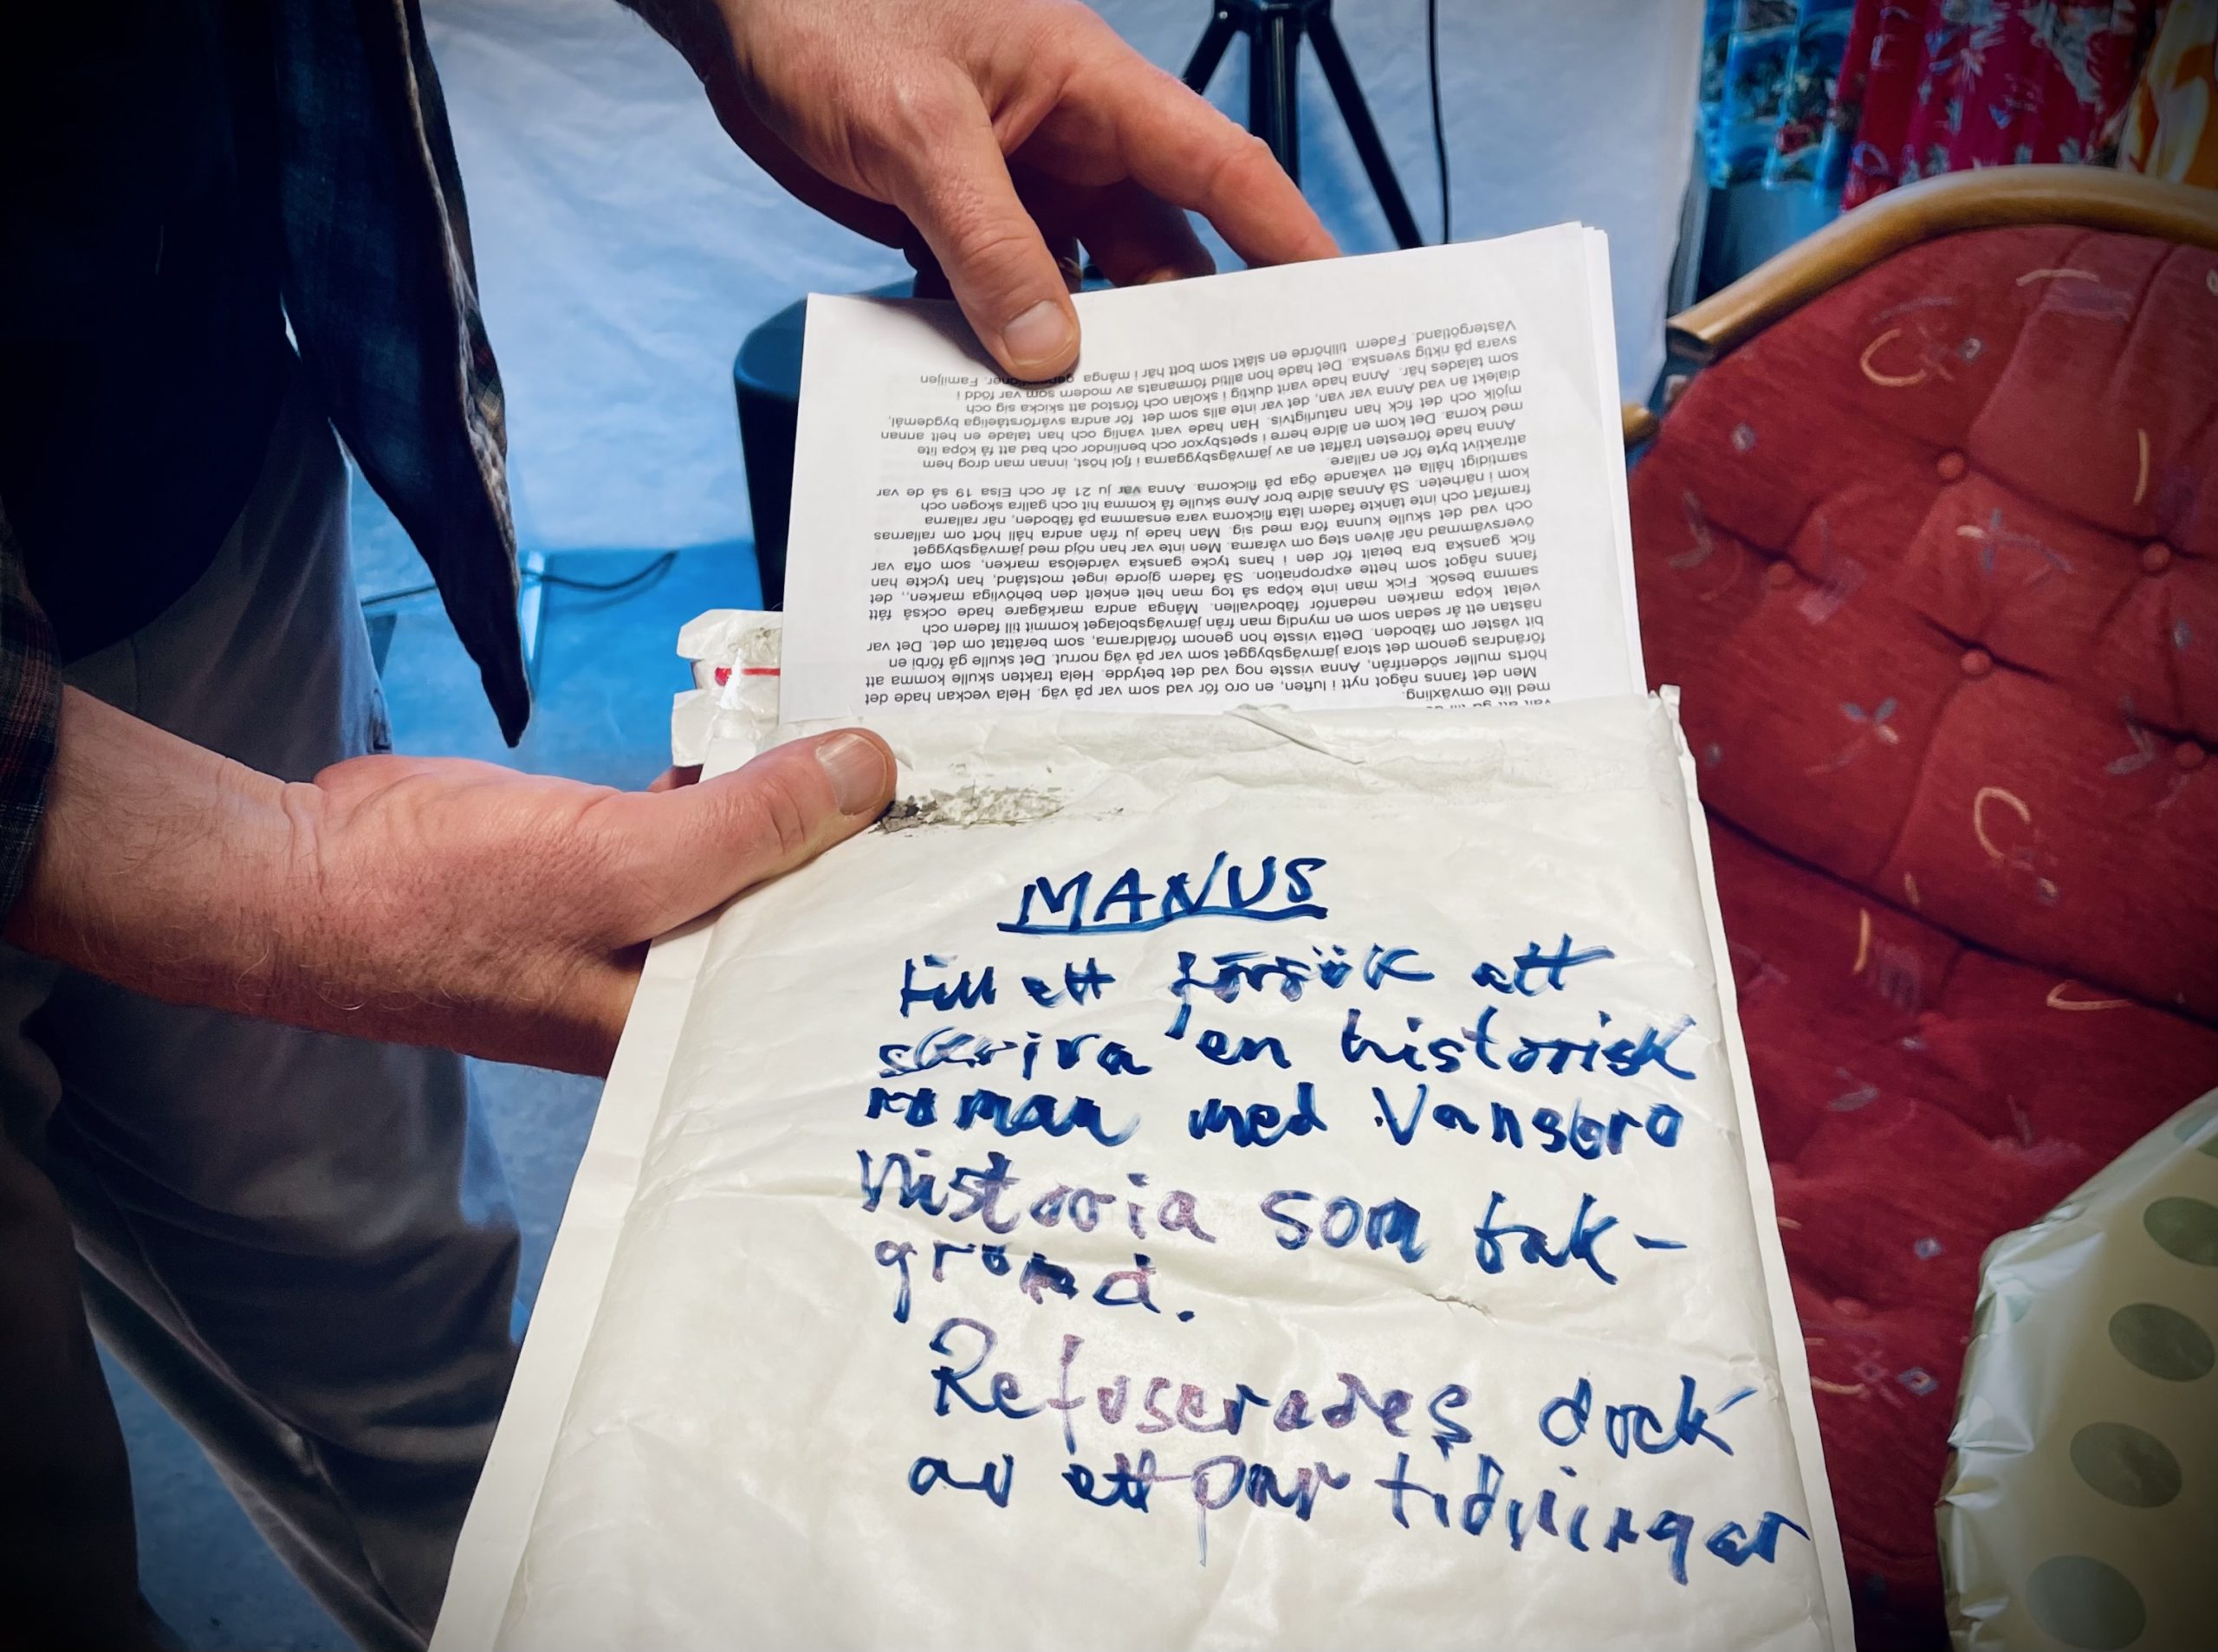 med lite omväxling.
Men det fanns något nytt i luften, en oro för vad som var på väg. Hela veckan hade det
hörts muller söderifrån, Anna visste nog vad det betydde. Hela trakten skulle komma att
förändras genom det stora järnvägsbygget som var på väg norrut. Det skulle gå förbi en
bit väster om fäboden. Detta visste hon genom föräldrarna, som berättat om det. Det var
nästan ett år sedan som en myndig man från järnvägsbolaget kommit till fadern och
velat köpa marken nedanför fäbodvallen. Många andra markägare hade också fått
samma besök. Fick man inte köpa så tog man helt enkelt den behövliga marken,, det
fanns något som hette expropriation. Så fadern gjorde inget motstånd, han tyckte han
fick ganska bra betalt för den i hans tycke ganska värdelösa marken, som ofta var
översvämmad när älven steg om vårarna. Men inte var han nöjd med järnvägsbygget
och vad det skulle kunna föra med sig. Man hade ju från andra håll hört om rallarnas
framfart och inte tänkte fadern låta flickorna vara ensamma på fäboden, när rallarna
kom i närheten. Så Annas äldre bror Arne skulle få komma hit och gallra skogen och
samtidigt hålla ett vakande öga på flickorna. Anna var ju 21 år och Elsa 19 så de var
attraktivt byte för en rallare.
Anna hade förresten träffat en av järnvägsbyggarna i fjol höst, innan man drog hem
med korna. Det kom en äldre herre i spetsbyxor och benlindor och bad att få köpa lite
mjölk och det fick han naturligtvis. Han hade varit vänlig och han talade en helt annan
dialekt än vad Anna var van, det var inte alls som det för andra svårförståeliga bygdemål,
som talades här. Anna hade varit duktig i skolan och förstod att skicka sig och
svara på riktig svenska. Det hade hon alltid förmanats av modern som var född i
Västergötland. Fadern tillhörde en släkt som bott här i många generationer. Familjen
MANUS
till ett försök att
skriva en historisk
roman med Vansbro
historia som bak-
grund.
Refuserades dock
av ett par tidningar